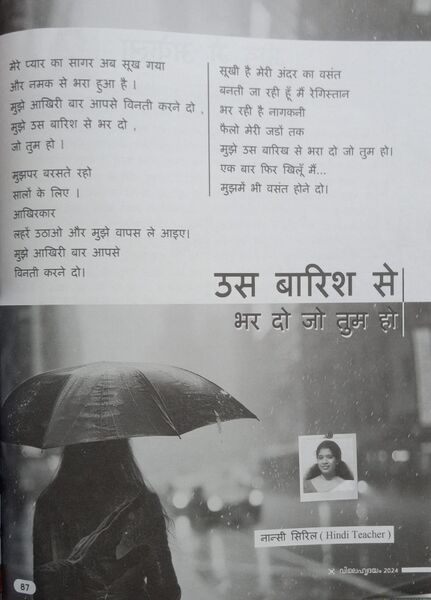 मेरे प्यार का सागर अब सूख गया
और नमक से भरा हुआ है ।
मुझे आखिरी बार आपसे विनती करने दो ,
मुझे उस बारिश से भर दो ,
जो तुम हो ।
मुझपर बरसते रहो
सालों के लिए ।
आखिरकार
लहरें उठाओ और मुझे वापस ले आइए।
मुझे आखिरी बार आपसे
विनती करने दो।
सूखी है मेरी अंदर का वसंत
बनती जा रही हूँ मैं रेगिस्तान
भर रही है नागकनी
फैलो मेरी जडों तक
मुझे उस बारिख से भरा दो जो तुम हो।
एक बार फिर खिलूँ मैं...
मुझमें भी वसंत होने दो।
उस बारिश से
भर दो जो तुम हो
नान्सी सिरिल ( Hindi Teacher )
87
2024